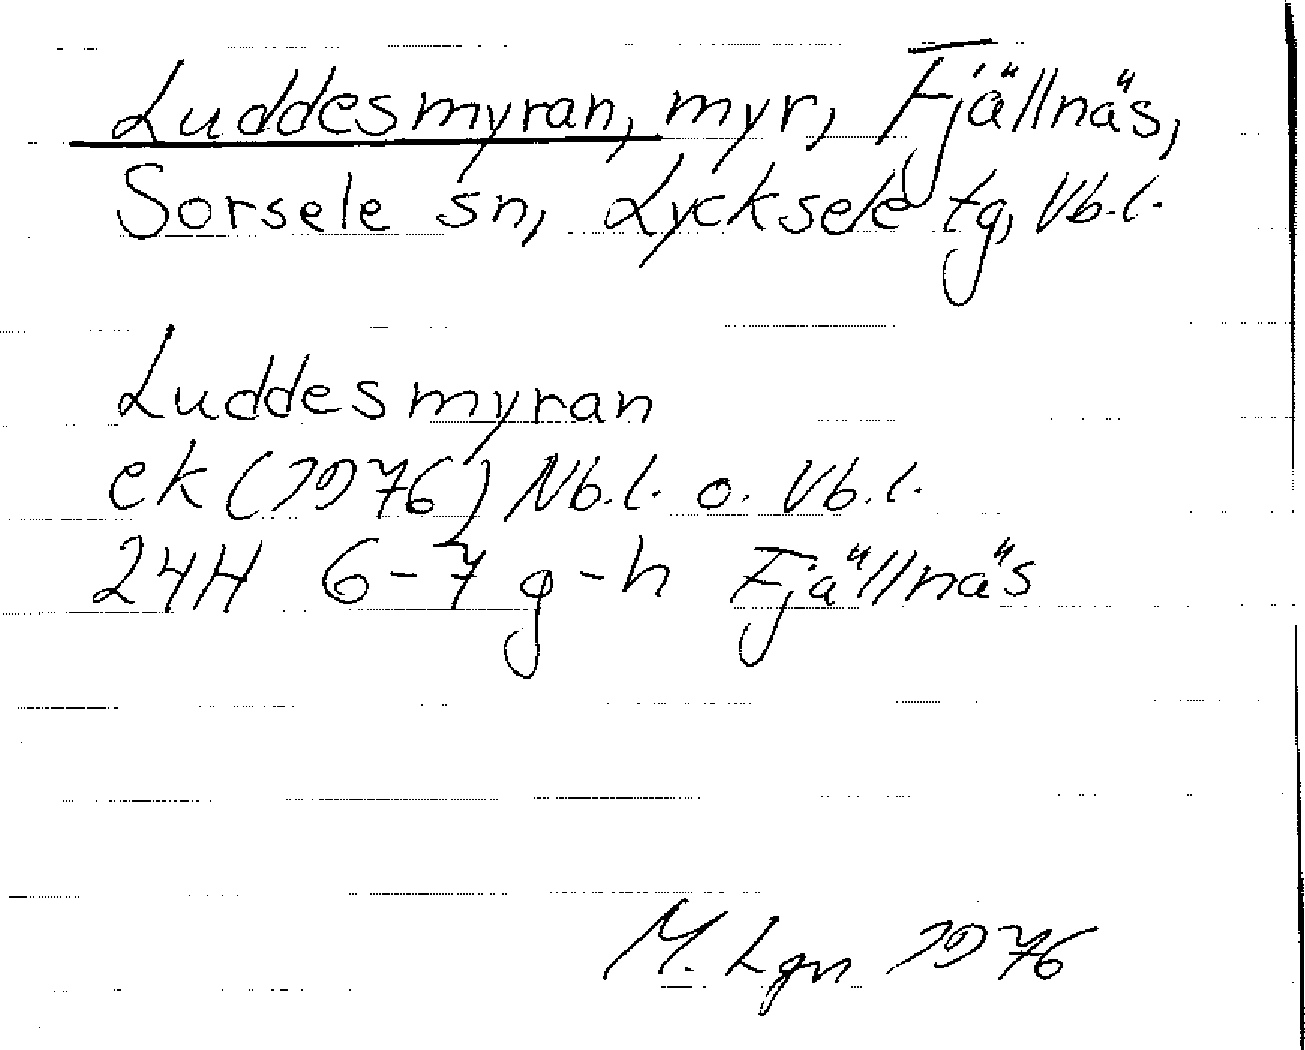 Luddesmyran, myr, Fjällnäs,
Sorsele sn, Lycksele tg, Vb.l.
Luddesmyran
ek (1976) Nb.l. o. Vb.l.
24H 6-7 g-h Fjällnäs
M. Lgn 1976